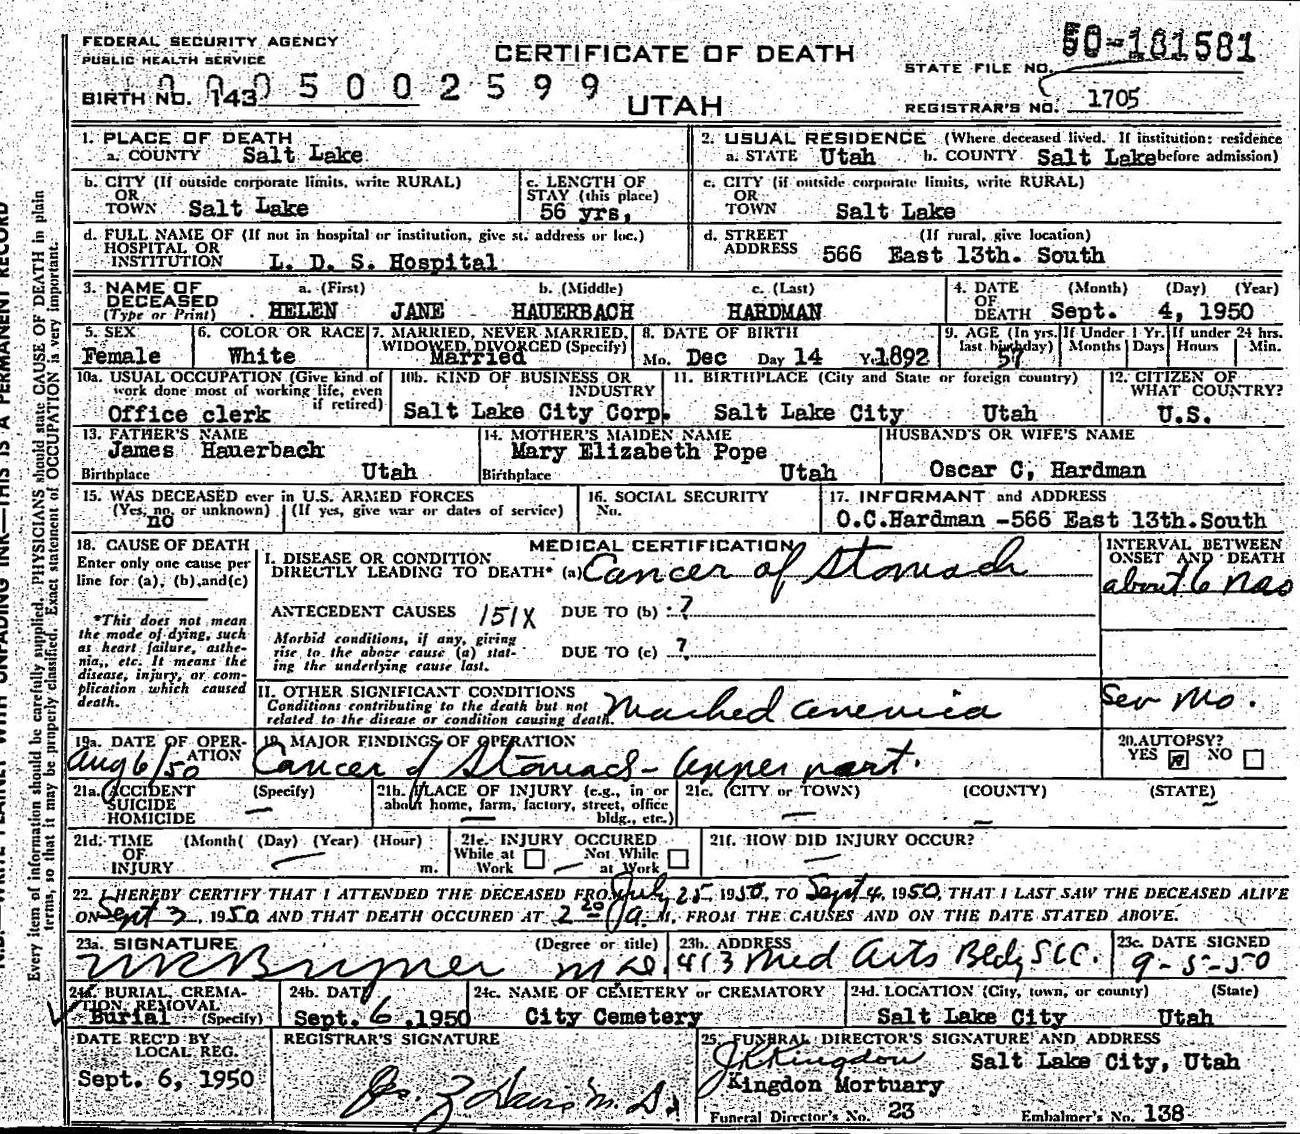 FEDERAL SECURITY AGENCY
PUBLIC HEALTH SERVICE
CERTIFICATE OF DEATH
UTAH
50-181581
STATE FILE NO.
BIRTH NO. 143
0005002599
REGISTRAR'S NO. 1705
1. PLACE OF DEATH
a. COUNTY Salt Lake
2. USUAL RESIDENCE (Where deceased lived. If institution: residence before admission)
a. STATE Utah b. COUNTY Salt Lake
b. CITY (If outside corporate limits, write RURAL)
OR
TOWN Salt Lake
c. LENGTH OF
STAY (this place)
56 yrs,
c. CITY (if outside corporate limits, write RURAL)
OR
TOWN Salt Lake
d. FULL NAME OF (If not in hospital or institution, give st. address or loc.)
HOSPITAL OR
INSTITUTION L. D. S. Hospital
d. STREET (If rural, give location)
ADDRESS 566 East 13th. South
3. NAME OF a. (First) b. (Middle) c. (Last)
DECEASED
(Type or Print) HELEN JANE HAUERBACH HARDMAN
4. DATE (Month) (Day) (Year)
OF
DEATH Sept. 4, 1950
5. SEX
Female
6. COLOR OR RACE
White
7. MARRIED, NEVER MARRIED,
WIDOWED, DIVORCED (Specify)
Married
8. DATE OF BIRTH
Mo. Dec Day 14 Y. 1892
9. AGE (In yrs. last birthday)
57
If Under 1 Yr.
Months Days
If under 24 hrs.
Hours Min.
10a. USUAL OCCUPATION (Give kind of
work done most of working life, even
if retired)
Office clerk
10b. KIND OF BUSINESS OR
INDUSTRY
Salt Lake City Corp.
11. BIRTHPLACE (City and State or foreign country)
Salt Lake City Utah
12. CITIZEN OF
WHAT COUNTRY?
U.S.
13. FATHER'S NAME
James Hauerbach
Birthplace Utah
14. MOTHER'S MAIDEN NAME
Mary Elizabeth Pope
Birthplace Utah
HUSBAND'S OR WIFE'S NAME
Oscar C, Hardman
15. WAS DECEASED ever in U.S. ARMED FORCES
(Yes, no, or unknown) (If yes, give war or dates of service)
no
16. SOCIAL SECURITY
No.
17. INFORMANT and ADDRESS
O.C.Hardman -566 East 13th.South
18. CAUSE OF DEATH
Enter only one cause per
line for (a), (b), and(c)
*This does not mean
the mode of dying, such
as heart failure, asthe-
nia,, etc. It means the
disease, injury, or com-
plication which caused
death.
MEDICAL CERTIFICATION
I. DISEASE OR CONDITION
DIRECTLY LEADING TO DEATH* (a) Cancer of Stomach
ANTECEDENT CAUSES 151X DUE TO (b) ?
Morbid conditions, if any, giving
rise to the above cause (a) stat-
ing the underlying cause last.
DUE TO (c) ?
II. OTHER SIGNIFICANT CONDITIONS
Conditions contributing to the death but not
related to the disease or condition causing death.
Marked anemia
INTERVAL BETWEEN
ONSET AND DEATH
about 6 mos
Sev Mo.
19a. DATE OF OPER-
ATION
Aug 6/50
19. MAJOR FINDINGS OF OPERATION
Cancer of Stomach - upper part.
20. AUTOPSY?
YES NO
21a. ACCIDENT (Specify)
SUICIDE
HOMICIDE
21b. PLACE OF INJURY (e.g., in or
about home, farm, factory, street, office
bldg., etc.)
21c. (CITY or TOWN) (COUNTY) (STATE)
21d. TIME (Month( (Day) (Year) (Hour)
OF
INJURY m.
21e. INJURY OCCURED
While at Work Not While at Work
21f. HOW DID INJURY OCCUR?
22. I HEREBY CERTIFY THAT I ATTENDED THE DECEASED FROM July 25, 1950, TO Sept 4, 1950, THAT I LAST SAW THE DECEASED ALIVE
ON Sept 3, 1950 AND THAT DEATH OCCURED AT 2 20 A M, FROM THE CAUSES AND ON THE DATE STATED ABOVE.
23a. SIGNATURE (Degree or title)
M.D.
23b. ADDRESS
413 Med Arts Bldg SLC.
23c. DATE SIGNED
9-5-50
24a. BURIAL, CREMA-
TION, REMOVAL
Burial (Specify)
24b. DATE
Sept. 6, 1950
24c. NAME OF CEMETERY or CREMATORY
City Cemetery
24d. LOCATION (City, town, or county) (State)
Salt Lake City Utah
DATE REC'D BY
LOCAL REG.
Sept. 6, 1950
REGISTRAR'S SIGNATURE
25. FUNERAL DIRECTOR'S SIGNATURE AND ADDRESS
Kingdon Salt Lake City, Utah
Kingdon Mortuary
Funeral Director's No. 23 Embalmer's No. 138
Every item of information should be carefully supplied. PHYSICIANS should state CAUSE OF DEATH in plain
terms, so that it may be properly classified. Exact statement of OCCUPATION is very important.
WITH UNFADING INK—THIS IS A PERMANENT RECORD